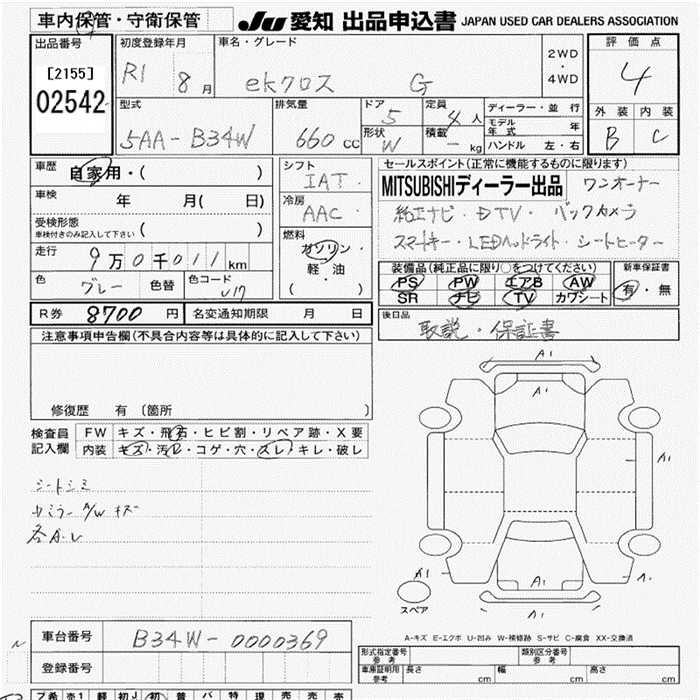 車内保管・守衛保管
JU 愛知 出品申込書 JAPAN USED CAR DEALERS ASSOCIATION
出品番号
[2155]
02542
初度登録年月
R1 8月
車名・グレード
ekクロス G
2WD
・
4WD
評価点
4
外装 内装
B C
型式
5AA-B34W
排気量
660 CC
ドア
5
形状
W
定員
4人
積載
- kg
ディーラー・並行
モデル年式 年
ハンドル 左・右
車歴
自家用・( )
車検
年 月( 日)
受検形態
車検付きのみ記入して下さい ( )
走行
9万0千011km
色
グレー 色替
色コード
U17
シフト
IAT
冷房
AAC
燃料
ガソリン・
軽・油
( )
セールスポイント(正常に機能するものに限ります)
MITSUBISHIディーラー出品 ワンオーナー
純正ナビ・DTV・バックカメラ
スマートキー・LEDヘッドライト・シートヒーター
装備品(純正品に限り○をつけてください)
PS PW エアB AW
SR ナビ TV カワシート
新車保証書
有・無
R券 8700 円
名変通知期限 月 日
後日品
取説・保証書
注意事項申告欄(不具合内容等は具体的に記入して下さい)
修復歴 有〔箇所 〕
検査員
記入欄
FW キズ・飛石・ヒビ割・リペア跡・X要
内装 キズ・汚れ・コゲ・穴・スレ・キレ・破レ
シートシミ
カミラー A/W キズ
各A・U
A1
A1
A1
A1
A1
A1
スペア
A-キズ E-エクボ U-凹み W-補修跡 S-サビ C-腐食 XX-交換済
車台番号
B34W-0000369
登録番号
形式指定番号
参考
類別区分番号
参考
車庫証明用
参考
長さ cm 幅 cm 高さ cm